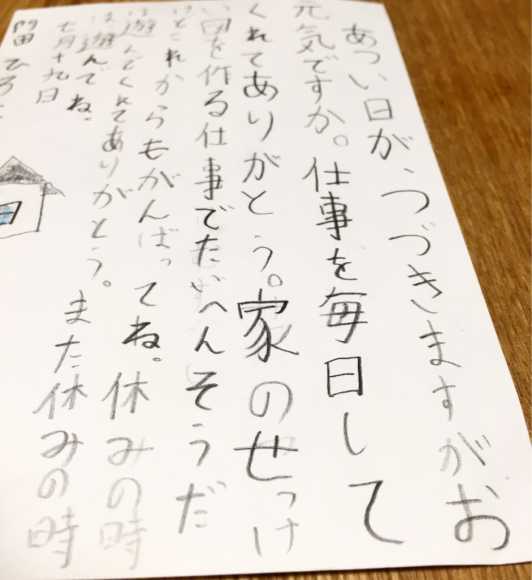 あつい日が、つづきますがお
元気ですか。仕事を毎日して
くれてありがとう。家のせっけ
い図を作る仕事でたいへんそうだ
けどこれからもがんばってね。休みの時
は遊んでくれてありがとう。また休みの時
は遊んでね。
七月十九日
門田 ひろ